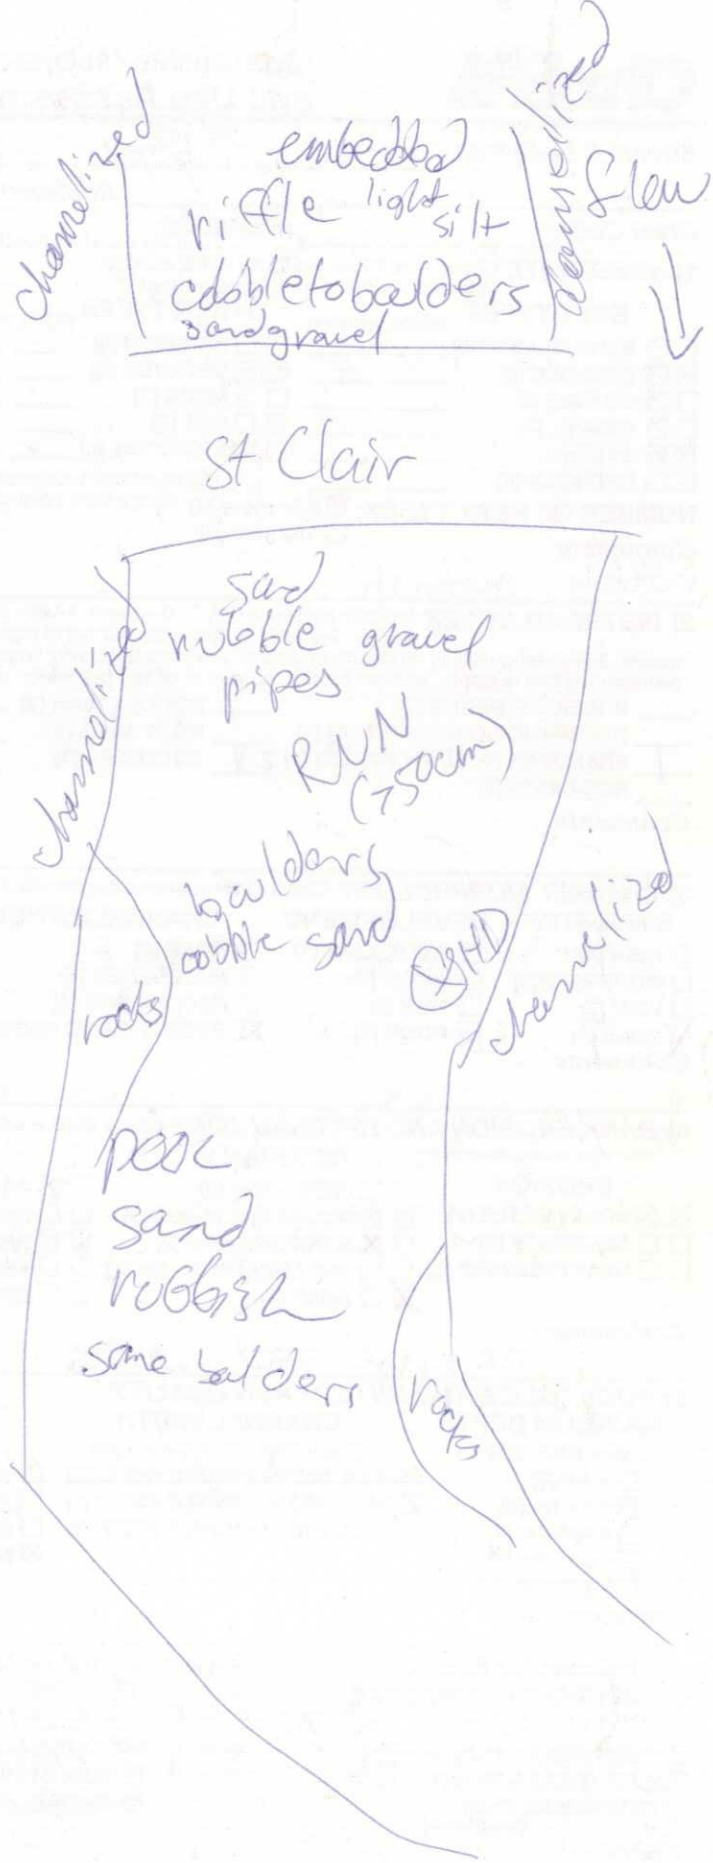 channelized
embedded
riffle light silt
cobble to boulders
sand gravel
channelized
flow
St Clair
sand
rubble gravel
pipes
RUN
(>50cm)
channelized
boulders
cobble sand
QHEI
channelized
rocks
POOL
sand
rubbish
some boulders
rocks